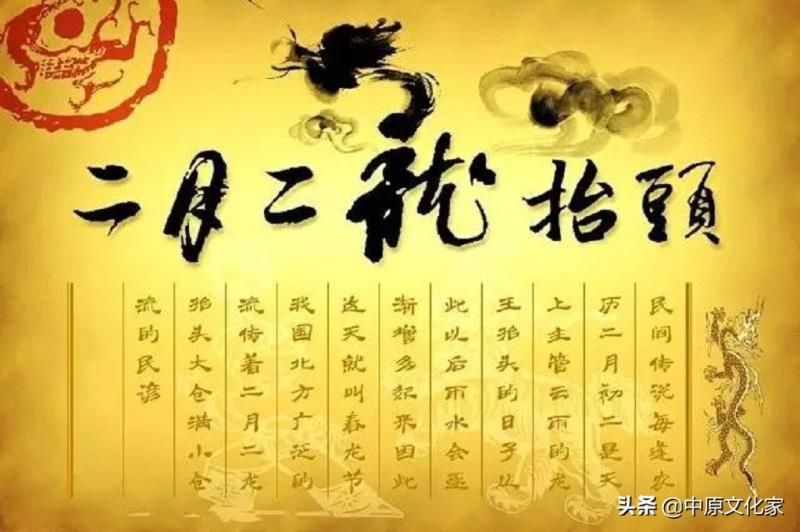 二月二龍抬頭
民间传说每逢农
历二月初二是天
上主管云雨的龙
王抬头的日子从
此以后雨水会逐
渐增多起来因此
这天就叫春龙节
我国北方广泛的
流传着二月二龙
抬头大仓满小仓
流的民谚
头条 @中原文化家